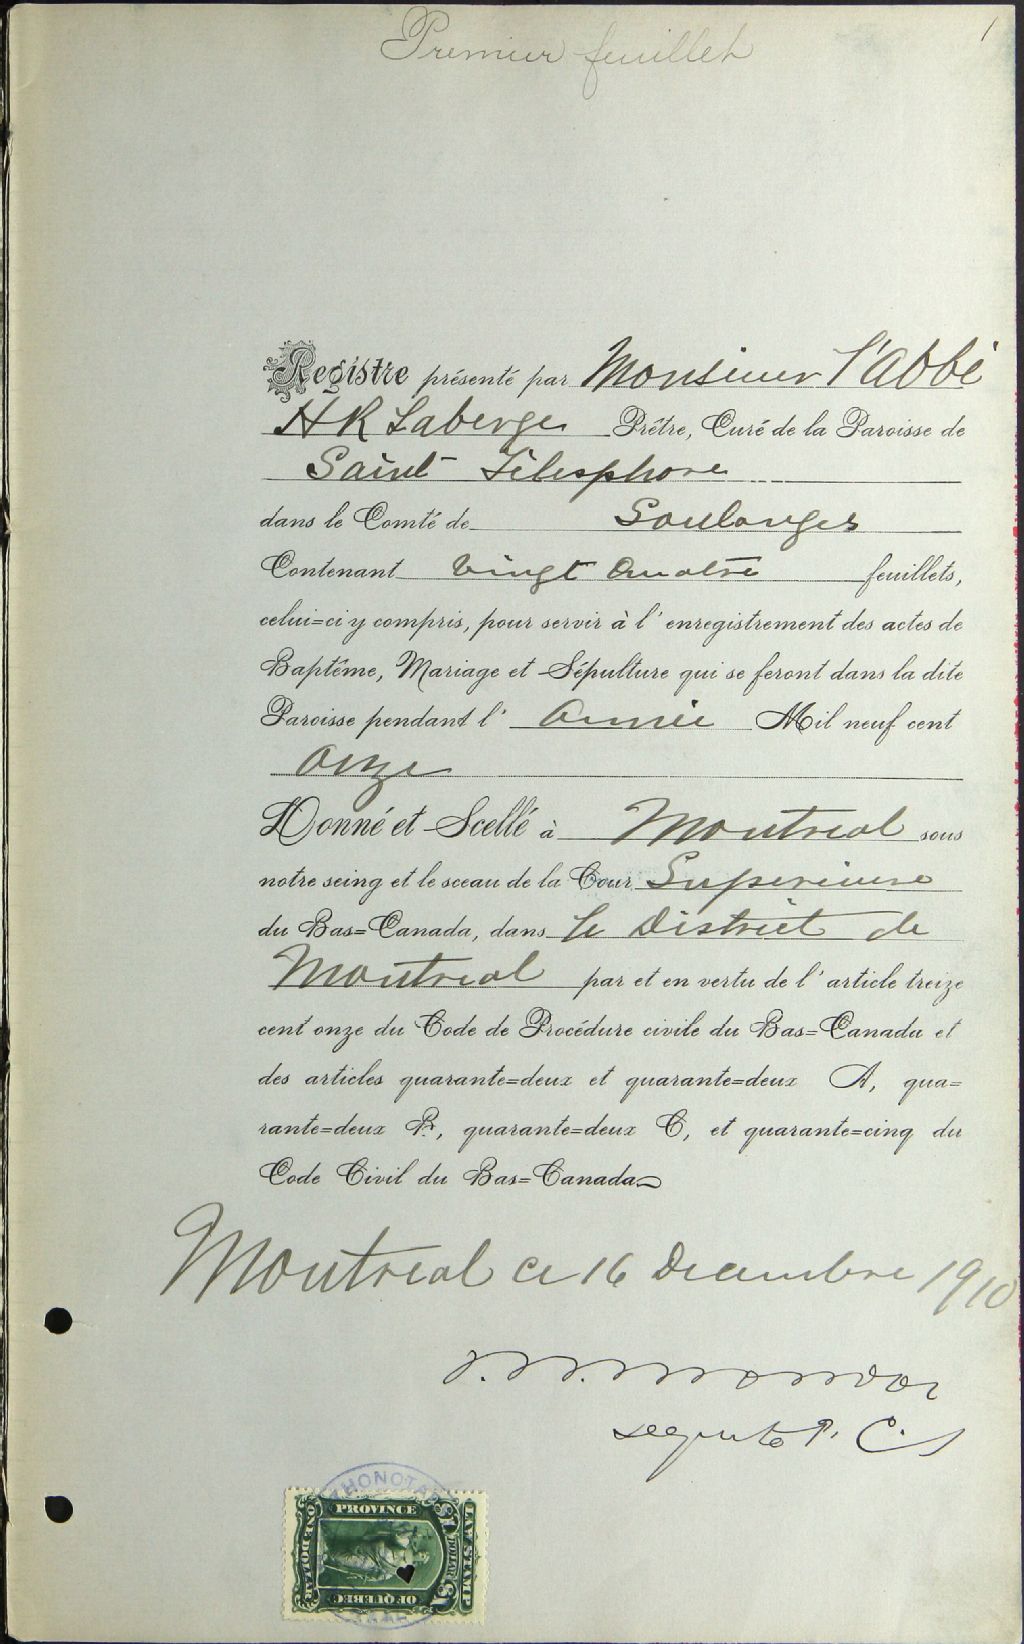 Premier feuillet
1
Registre présenté par Monsieur l'Abbé
H R Laberge Prêtre, Curé de la Paroisse de
Saint Télesphore
dans le Comté de Soulanges
Contenant vingt quatre feuillets,
celui=ci y compris, pour servir à l'enregistrement des actes de
Baptême, Mariage et Sépulture qui se feront dans la dite
Paroisse pendant l'Année Mil neuf cent
Onze
Donné et Scellé à Montreal sous
notre seing et le sceau de la Cour Superieure
du Bas=Canada, dans le District de
Montreal par et en vertu de l'article treize
cent onze du Code de Procédure civile du Bas=Canada et
des articles quarante=deux et quarante=deux A, qua=
rante=deux B, quarante=deux C, et quarante=cinq du
Code Civil du Bas=Canada
Montreal ce 16 Decembre 1910
P. C. S
PROVINCE
OF QUEBEC
LAW STAMP
ONE DOLLAR
$1 DOLLAR $1